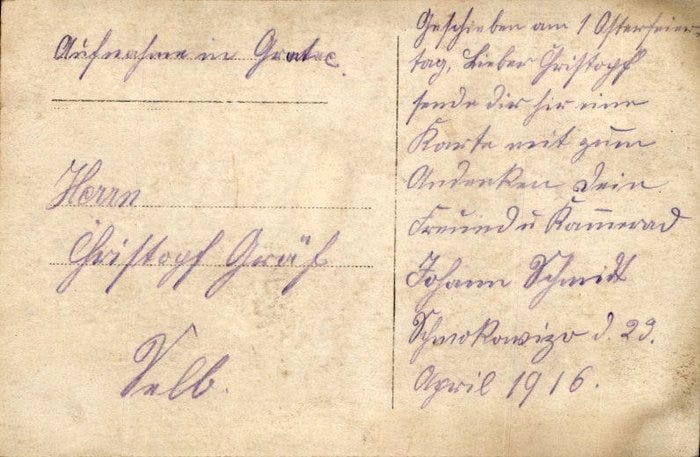 Aufnahme in Gratac.
Herrn
Christopf Gräf
Selb.
Geschieben am 1 Osterfeier-
tag, Lieber Christopf
sende dir hir eine
Karte mit zum
Andenken Dein
Freund u Kammerad
Johann Schmidt
Schmokowizo d. 23.
April 1916.